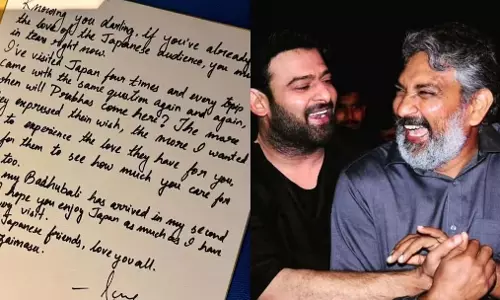 Knowing you darling, if you've already
the love of the Japanese audience, you must
in tears right now.
I've visited Japan four times and every trip,
came with the same question again and again,
when will Prabhas come here? The more
they expressed their wish, the more I wanted
to experience the love they have for you,
for them to see how much you care for
too.
my Baahubali has arrived in my second
hope you enjoy Japan as much as I have
every visit.
Japanese friends, love you all.
zaimasu.